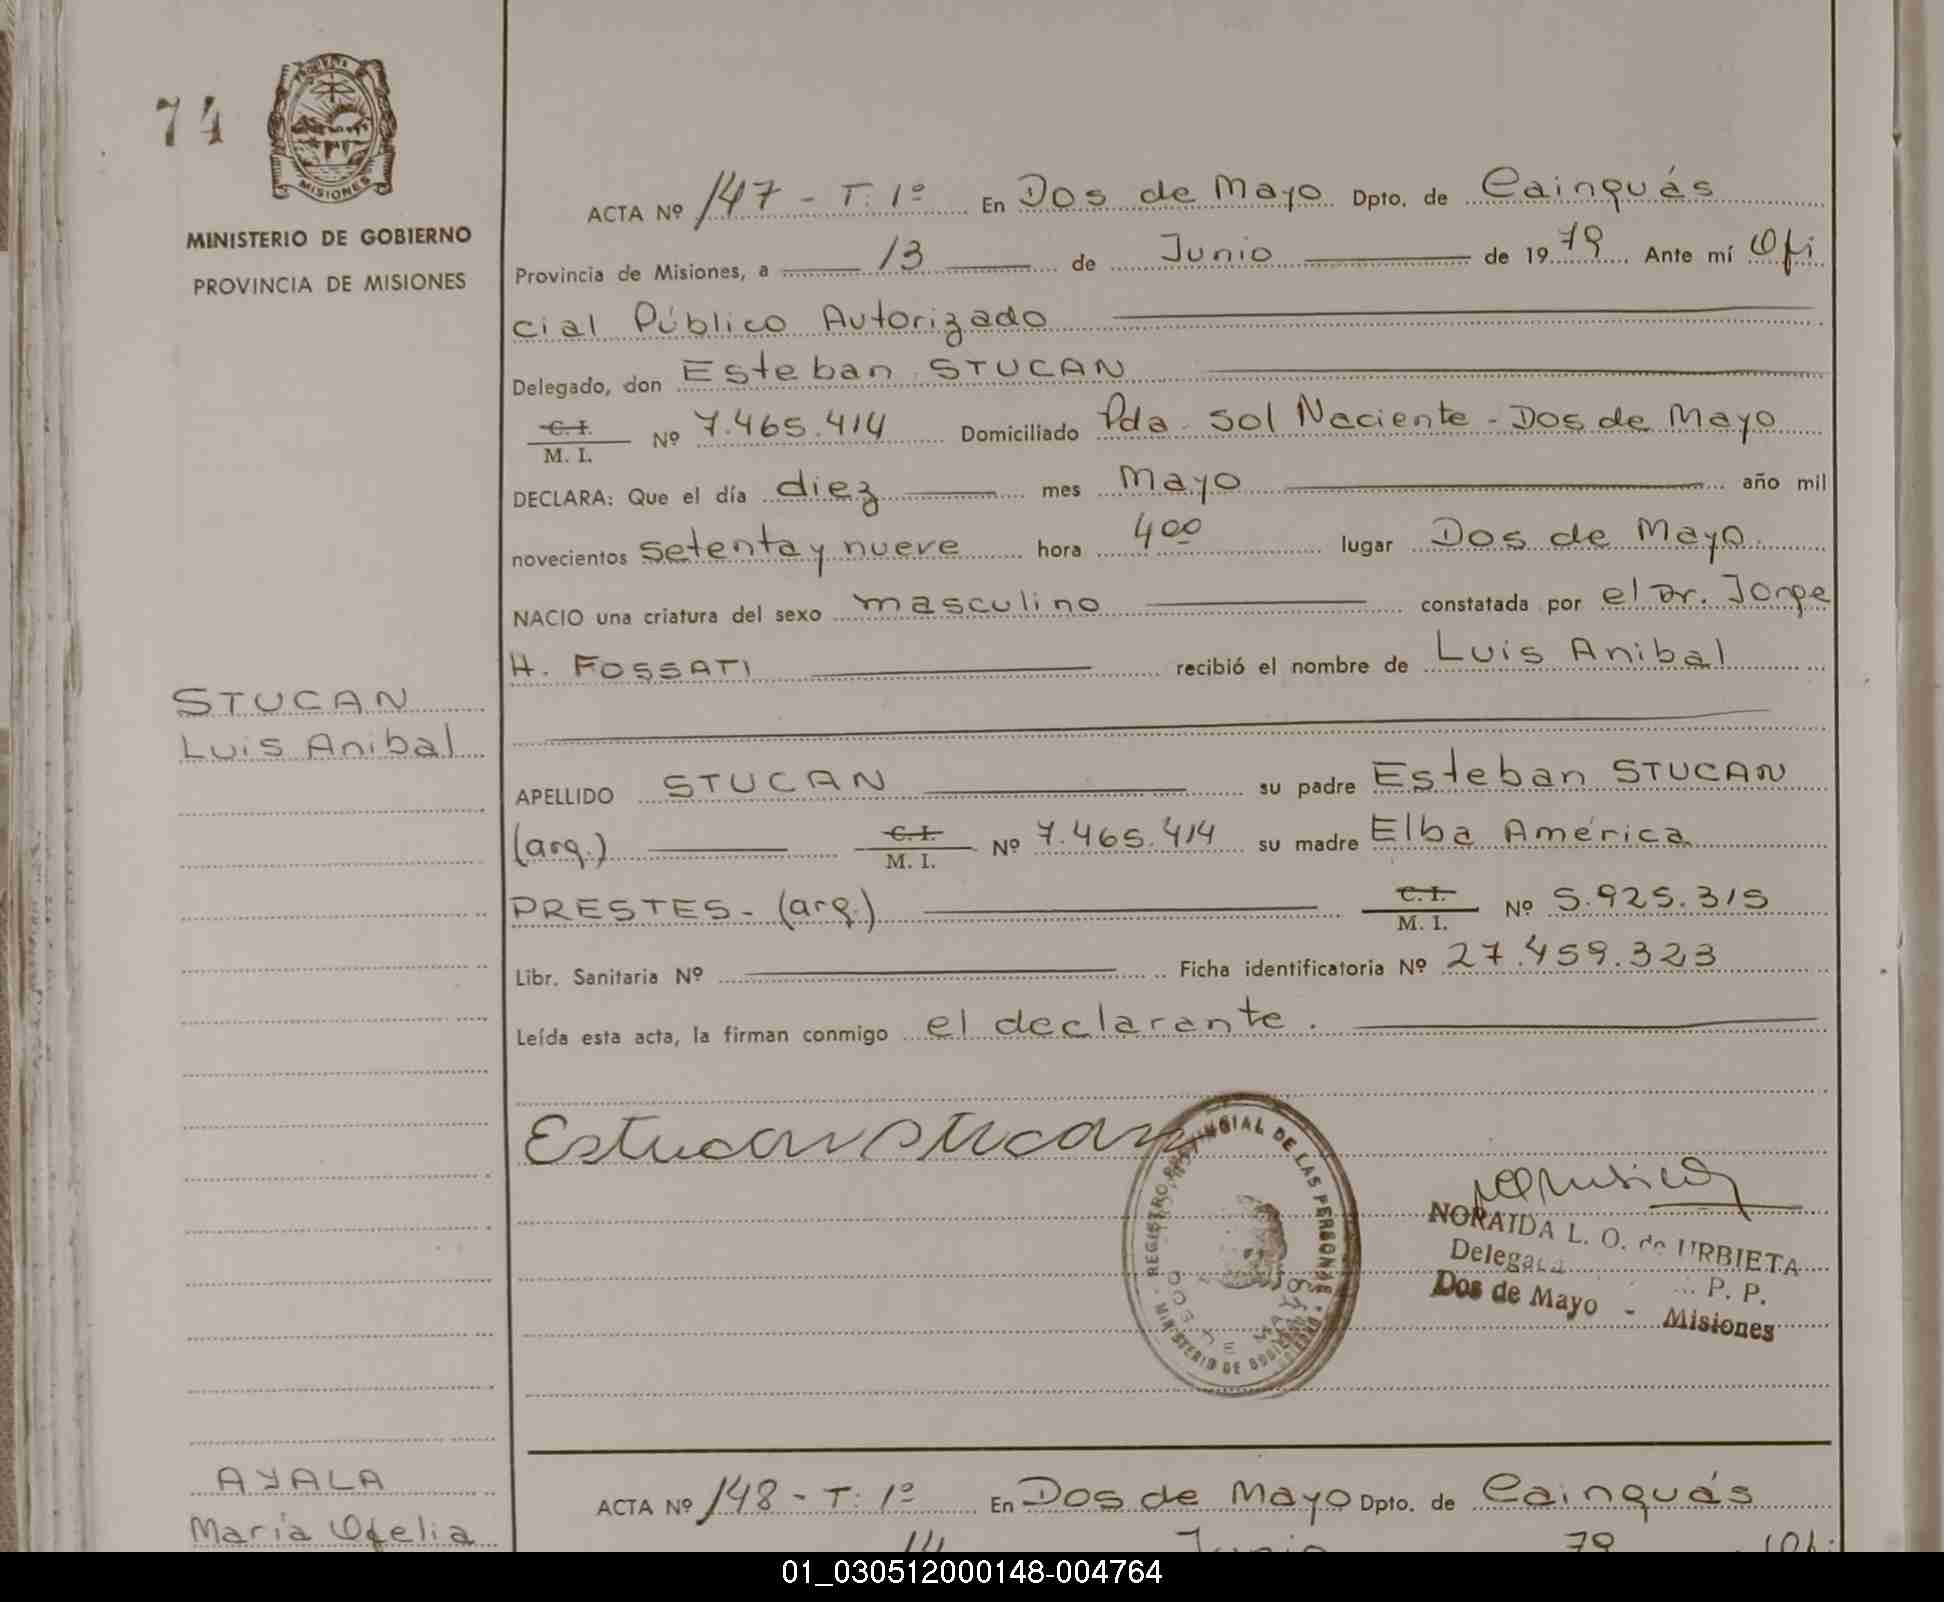 74
MISIONES
MINISTERIO DE GOBIERNO
PROVINCIA DE MISIONES
STUCAN
Luis Anibal
ACTA Nº 147 - T. 1º En Dos de Mayo Dpto. de Cainguás
Provincia de Misiones, a 13 de Junio de 1979 Ante mí Ofi
cial Público Autorizado
Delegado, don Esteban STUCAN
C. I.
M. I. Nº 7.465.414 Domiciliado Pda. Sol Naciente - Dos de Mayo
DECLARA: Que el día diez mes Mayo año mil
novecientos setenta y nueve hora 4 00 lugar Dos de Mayo.
NACIO una criatura del sexo masculino constatada por el Dr. Jorge
H. FOSSATI recibió el nombre de Luis Anibal
APELLIDO STUCAN su padre Esteban STUCAN
(arg.) C. I.
M. I. Nº 7.465.414 su madre Elba América
PRESTES - (arg.) C. I.
M. I. Nº 5.925.315
Libr. Sanitaria Nº Ficha identificatoria Nº 27.459.323
Leída esta acta, la firman conmigo el declarante.
REGISTRO PROVINCIAL DE LAS PERSONAS
MINISTERIO DE GOBIERNO
NORAIDA L. O. de URBIETA
P. P.
Dos de Mayo - Misiones
AYALA
María Ofelia
ACTA Nº 148 - T: 1º En Dos de Mayo Dpto. de Cainguás
14 Junio 79 Ofi
01_030512000148-004764